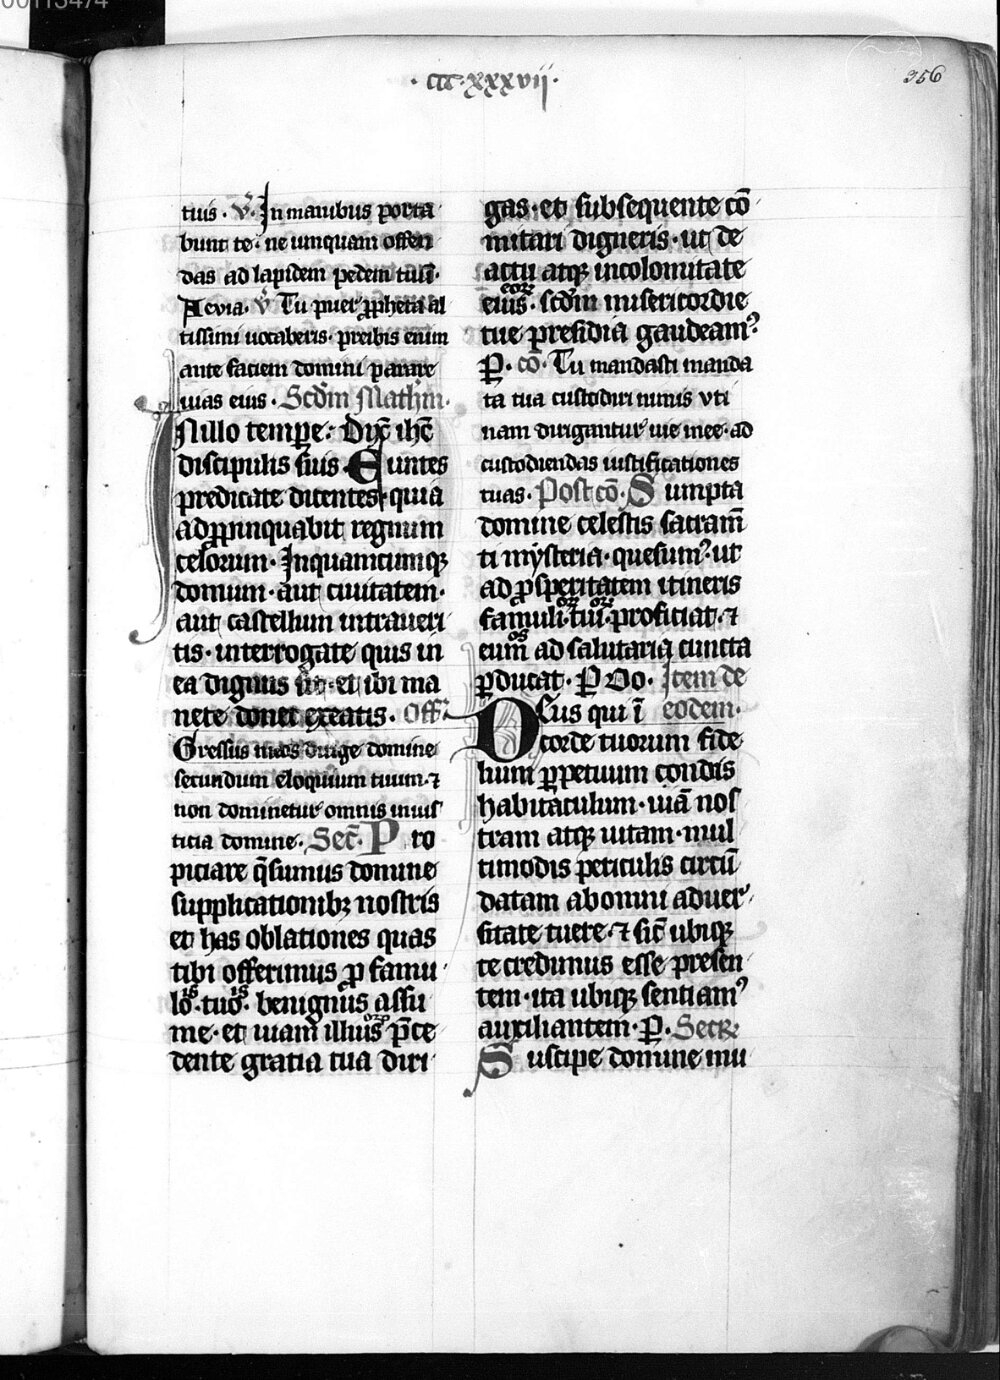 00113474
· ccc · xxxvii ·
356
tuis · V̇ · In manibus porta
bunt te · ne unquam offen
das ad lapidem pedem tuū ·
Aevia · V̇ Tu puer ꝓpheta al
tissimi vocaberis · preibis enim
ante faciem domini parare
vias eius · Scd̄m Math̄m ·
IN illo tempe : Dix̄ ih̄c
discipulis suis · Euntes
predicate dicentes · quia
adꝓpinquabit regnum
celorum · In quamcumqꝫ
domum · aut civitatem ·
aut castellum intraveri
tis · interrogate quis in
ea dignus sit · et ibi ma
nete donec exeatis · Off
Gressus meos dirige domine
secundum eloquium tuum · ⁊
non dominetur omnis iniusˈ
ticia domine · Sec̄ · P ro
piciare q̄sumus domine
supplicationibꝫ nostris
et has oblationes quas
tibi offerimus ꝓ famu
lo · tuo · benignus assu
is is
me · et viam illius p̄ce
orꝝ
dente gratia tua diri
gas · et subsequente cō
mitari digneris · ut de
actu atqꝫ incolomitate
eius · scd̄m misericordie
eorꝝ
tue presidia gaudeamꝰ
P̱ · cō · Tu mandasti manda
ta tua custodiri nimis vti
nam dirigantur vie mee · ad
custodiendas iustificationes
tuas · Postcō · S umpta
domine celestis sacram̄
ti mysteria · quesumꝰ · ut
ad ꝓsperitatem itineris
famuli · tui · proficiat · ⁊
orꝝ orꝝ
eum ad salutaria cuncta
os
ꝑducat · P̱ Do · Item de
DEus qui ī eodem ·
corde tuorum fide
lium ꝑpetuum condis
habitaculum · viā nos
tram atqꝫ vitam · mul
timodis periculis circū
datam ab omni adverˈ
sitate tuere · ⁊ sic̄ ubiqꝫ
te credimus esse presen
tem · ita ubiqꝫ sentiamꝰ
auxiliantem · P̱ · Secꝛ
S uscipe domine mu